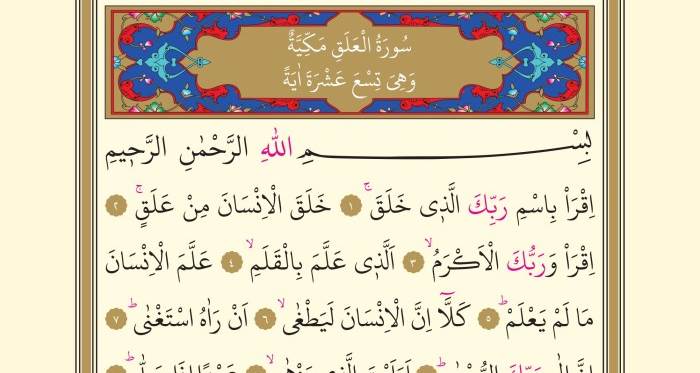 سُورَةُ الْعَلَقِ مَكِّيَّةٌ
وَهِىَ تِسْعَ عَشْرَةَ اٰيَةً
بِسْمِ اللّٰهِ الرَّحْمٰنِ الرَّح۪يمِ
اِقْرَاْ بِاسْمِ رَبِّكَ الَّذ۪ى خَلَقَۚ ١ خَلَقَ الْاِنْسَانَ مِنْ عَلَقٍۚ ٢
اِقْرَاْ وَرَبُّكَ الْاَكْرَمُۙ ٣ اَلَّذ۪ى عَلَّمَ بِالْقَلَمِۙ ٤ عَلَّمَ الْاِنْسَانَ
مَا لَمْ يَعْلَمْۜ ٥ كَلَّٓا اِنَّ الْاِنْسَانَ لَيَطْغٰىۙ ٦ اَنْ رَاٰهُ اسْتَغْنٰىۜ ٧